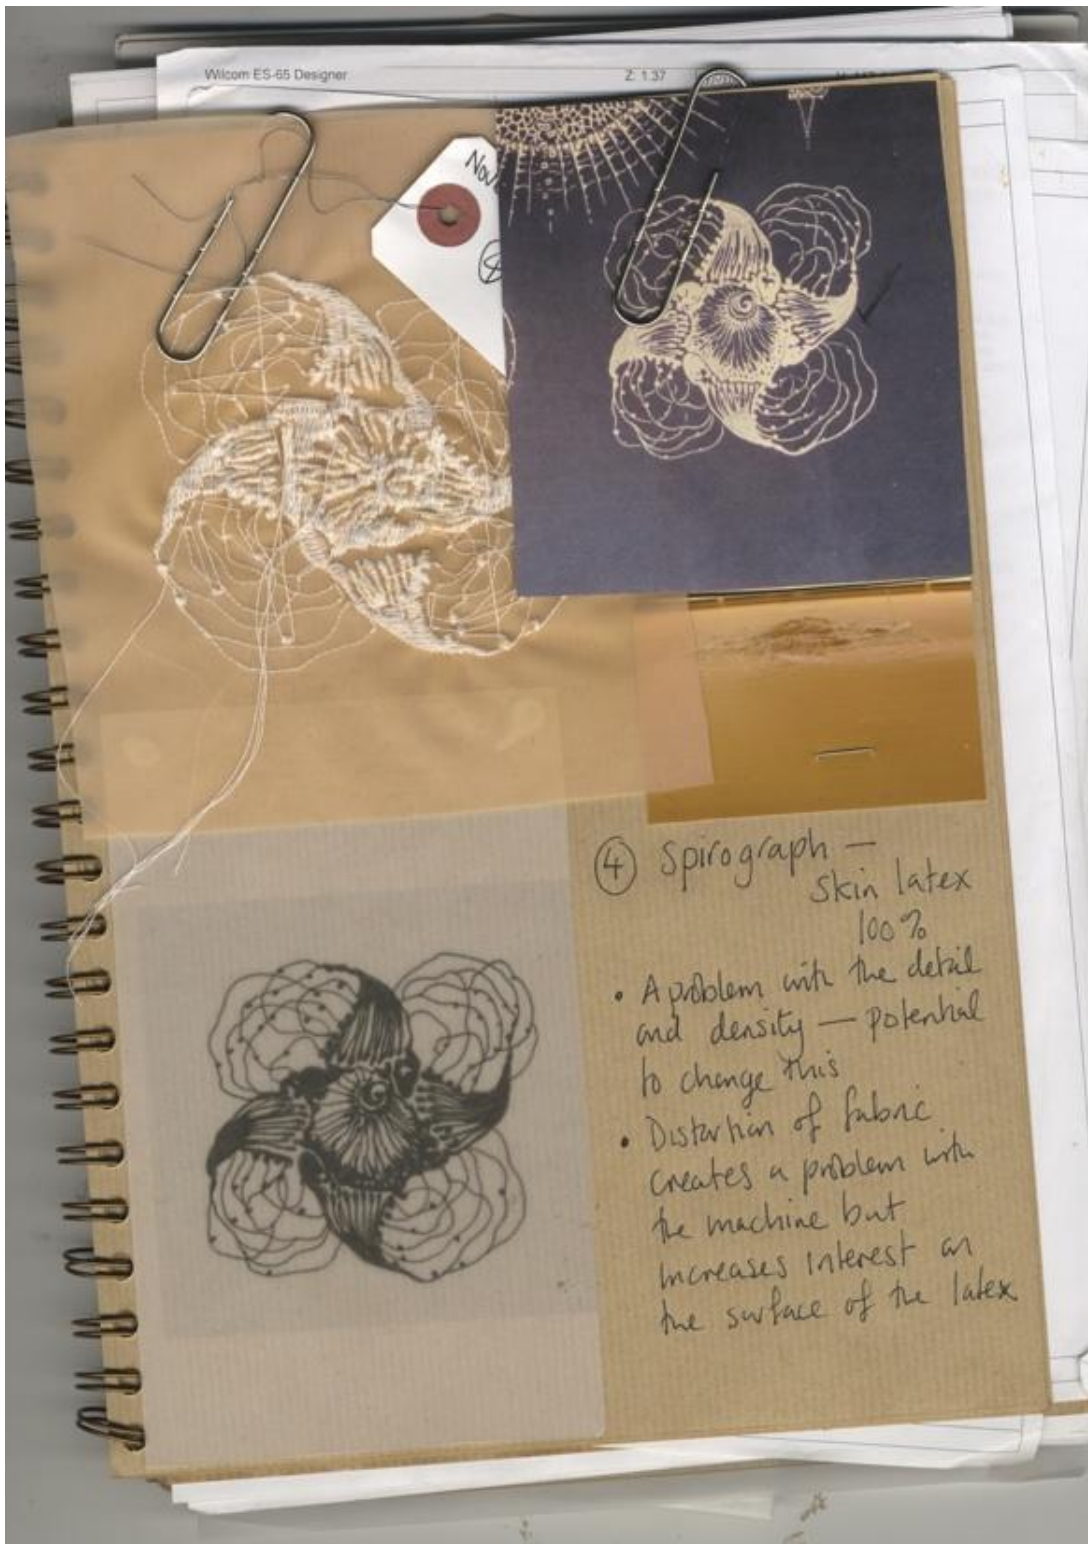 Wilcom ES-65 Designer
Z: 1.37
④ Spirograph —
Skin latex
100%
• A problem with the detail
and density — potential
to change this
• Distortion of fabric
creates a problem with
the machine but
increases interest on
the surface of the latex